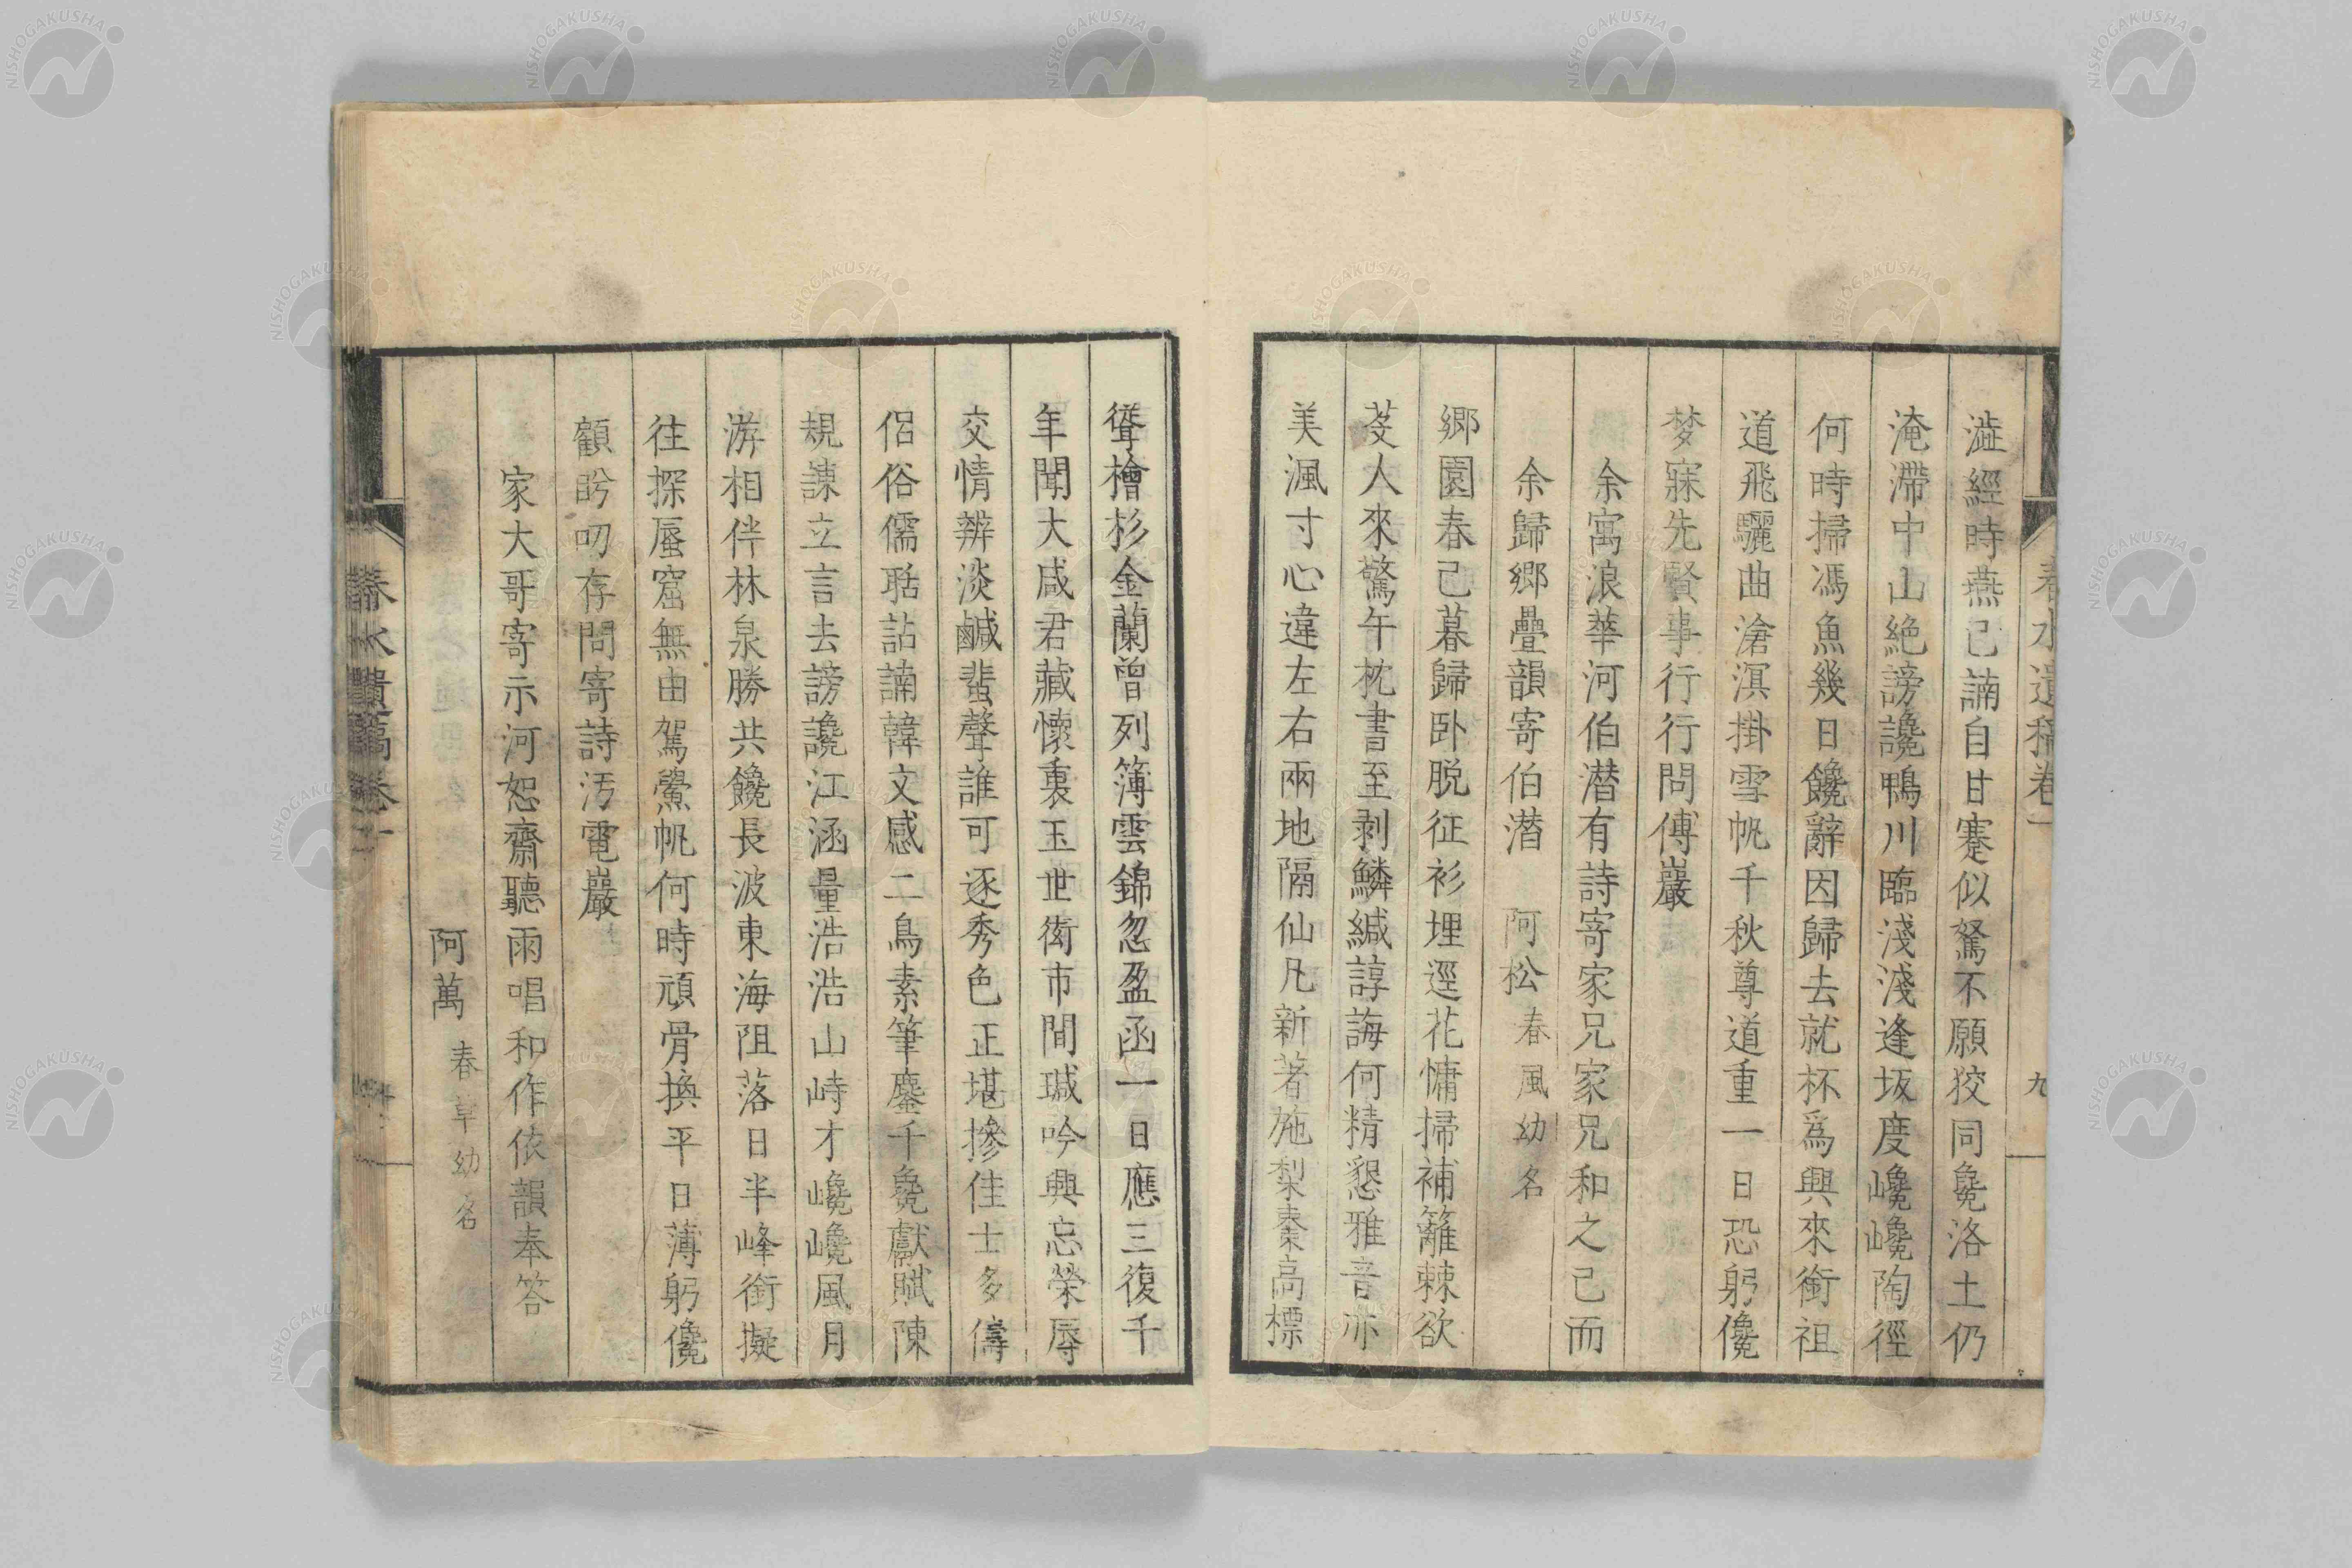 澁經時燕已諵自甘蹇似駑不願狡同毚洛土仍
淹滯中山絶謗讒鴨川臨淺淺逢坂度巉巉陶徑
何時掃馮魚幾日饞辭因歸去就杯爲興來銜祖
道飛驪曲滄溟掛雪帆千秋尊道重一日恐躬儳
梦寐先賢事行行問傅巖
余寓浪華河伯潛有詩寄家兄家兄和之已而
余歸鄉疊韻寄伯潛 阿松 春風幼名
鄉園春已暮歸卧脱征衫埋逕花慵掃補籬棘欲
芟人來驚午枕書至剥鱗緘諄誨何精懇雅音亦
美渢寸心違左右兩地隔仙凡新著施梨棗高標
聳檜杉金蘭曾列簿雲錦忽盈函一日應三復千
年聞大咸君藏懷裏玉世衒市間瑊吟興忘榮辱
交情辨淡鹹蜚聲誰可逐秀色正堪摻佳士多儔
侶俗儒聒詀諵韓文感二鳥素筆鏖千毚獻賦陳
規諫立言去謗讒江涵量浩浩山峙才巉巉風月
游相伴林泉勝共饞長波東海阻落日半峰銜擬
往探蜃窟無由駕鱟帆何時頑骨換平日薄躬儳
顧盻叨存問寄詩汚電巖
家大哥寄示河恕齋聽雨唱和作依韻奉答
阿萬 春草幼名
春水遺稿卷一
九
春水遺稿卷一
NISHOGAKUSHA